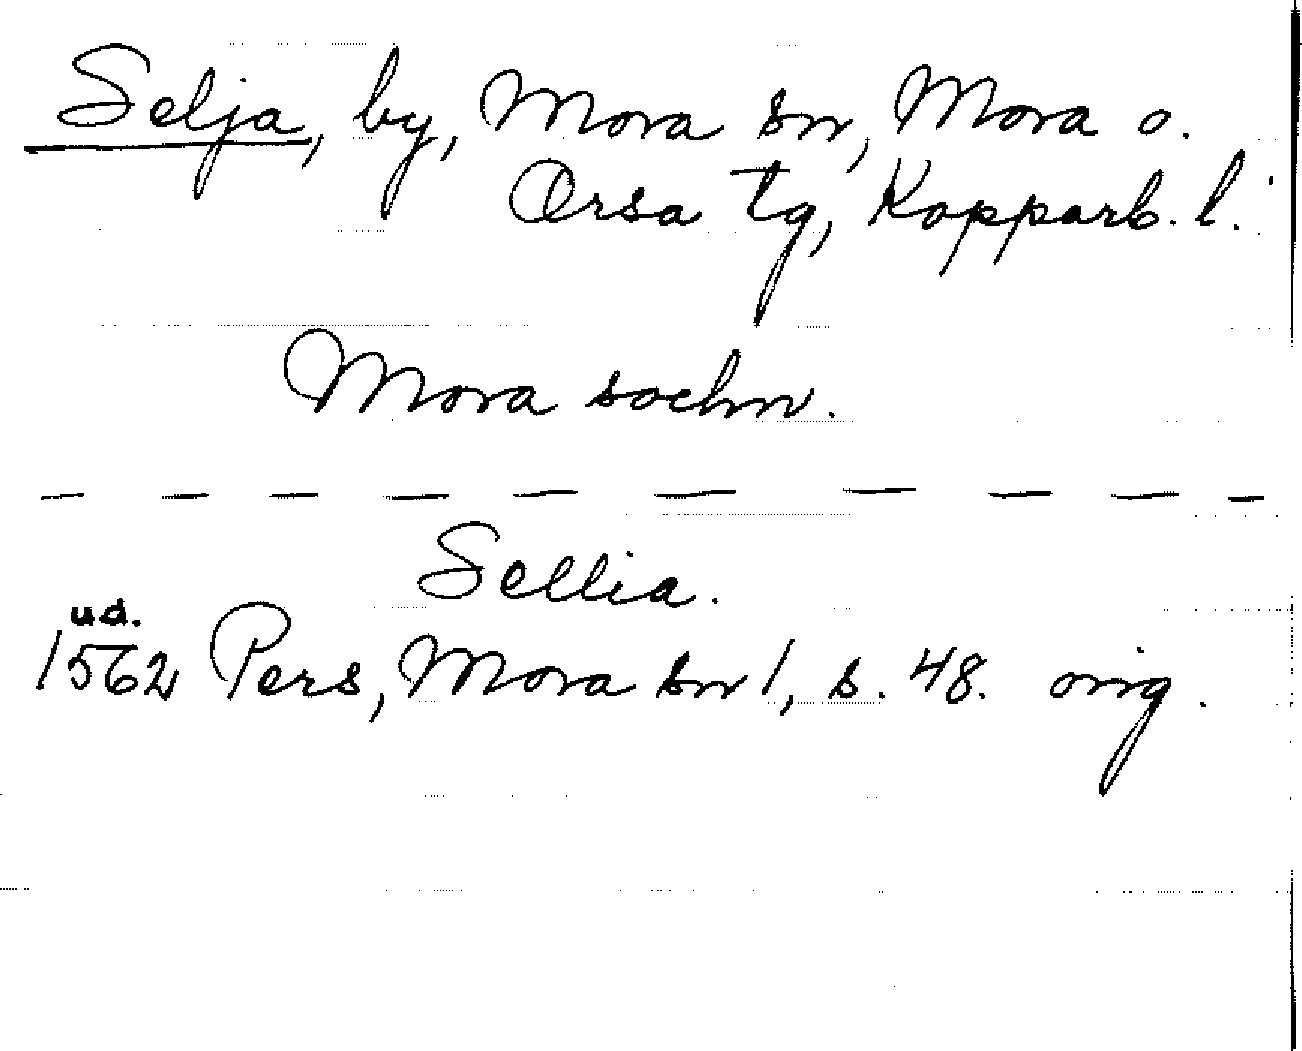 Selja, by, Mora sn, Mora o.
Orsa tg, Kopparb. l.
Mora sochn.
— — — — — — — — — —
Sellia.
u.d.
1562 Pers, Mora sn 1, s. 48. orig.